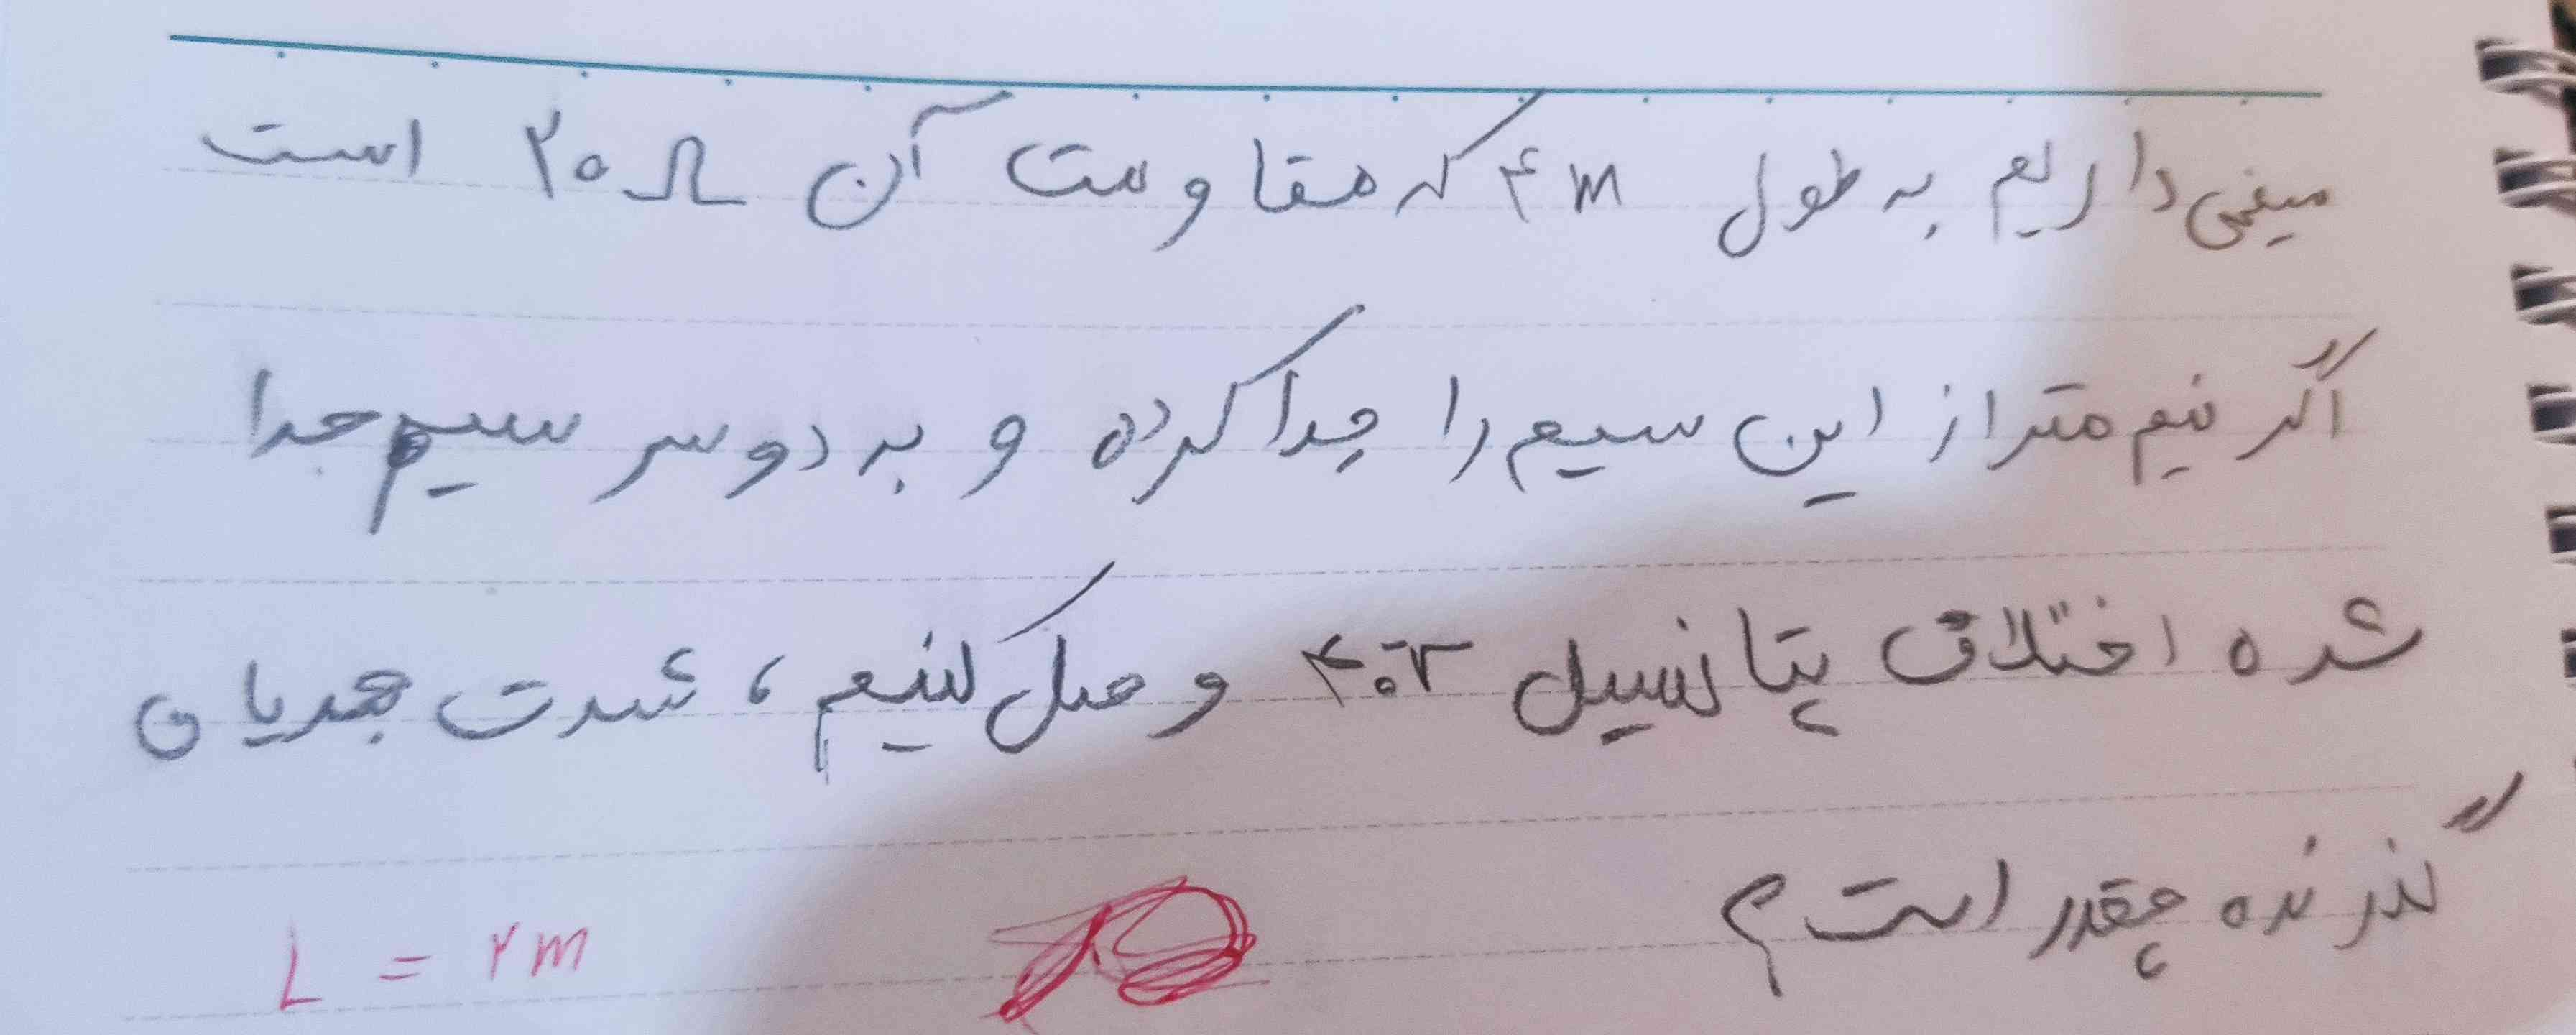 سیمی داریم به طول ۴m که مقاومت آن ۲۰Ω است
اگر نیم متر از این سیم را جدا کرده و به دو سر سیم جدا
شده اختلاف پتانسیل وصل کنیم، شدت جریان
گذرنده چقدر است؟
L = ۲m